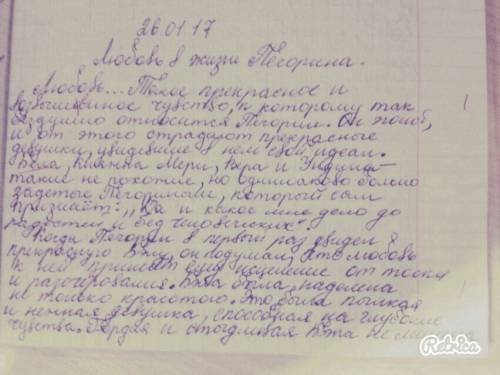 26.01.17
Любовь в жизни Печорина.
Любовь... Такое прекрасное и
возвышенное чувство, к которому так
бездушно относится Печорин. Он эгоист,
и от этого страдают прекрасные
девушки, увидевшие в нём свой идеал.
Бэла, княжна Мери, Вера и Ундина
такие не похожие, но одинаково больно
задетые Печориным, который сам
признаёт: „Да и какое мне дело до
радостей и бед человеческих".
Когда Печорин в первый раз увидел
прекрасную Бэлу, он подумал, что любовь
к ней принесёт ему исцеление от тоски
и разочарования. Бэла была наделена
не только красотою. Это была пылкая
и нежная девушка, способная на глубокие
чувства. Гордая и стыдливая Бэла не
Retrica